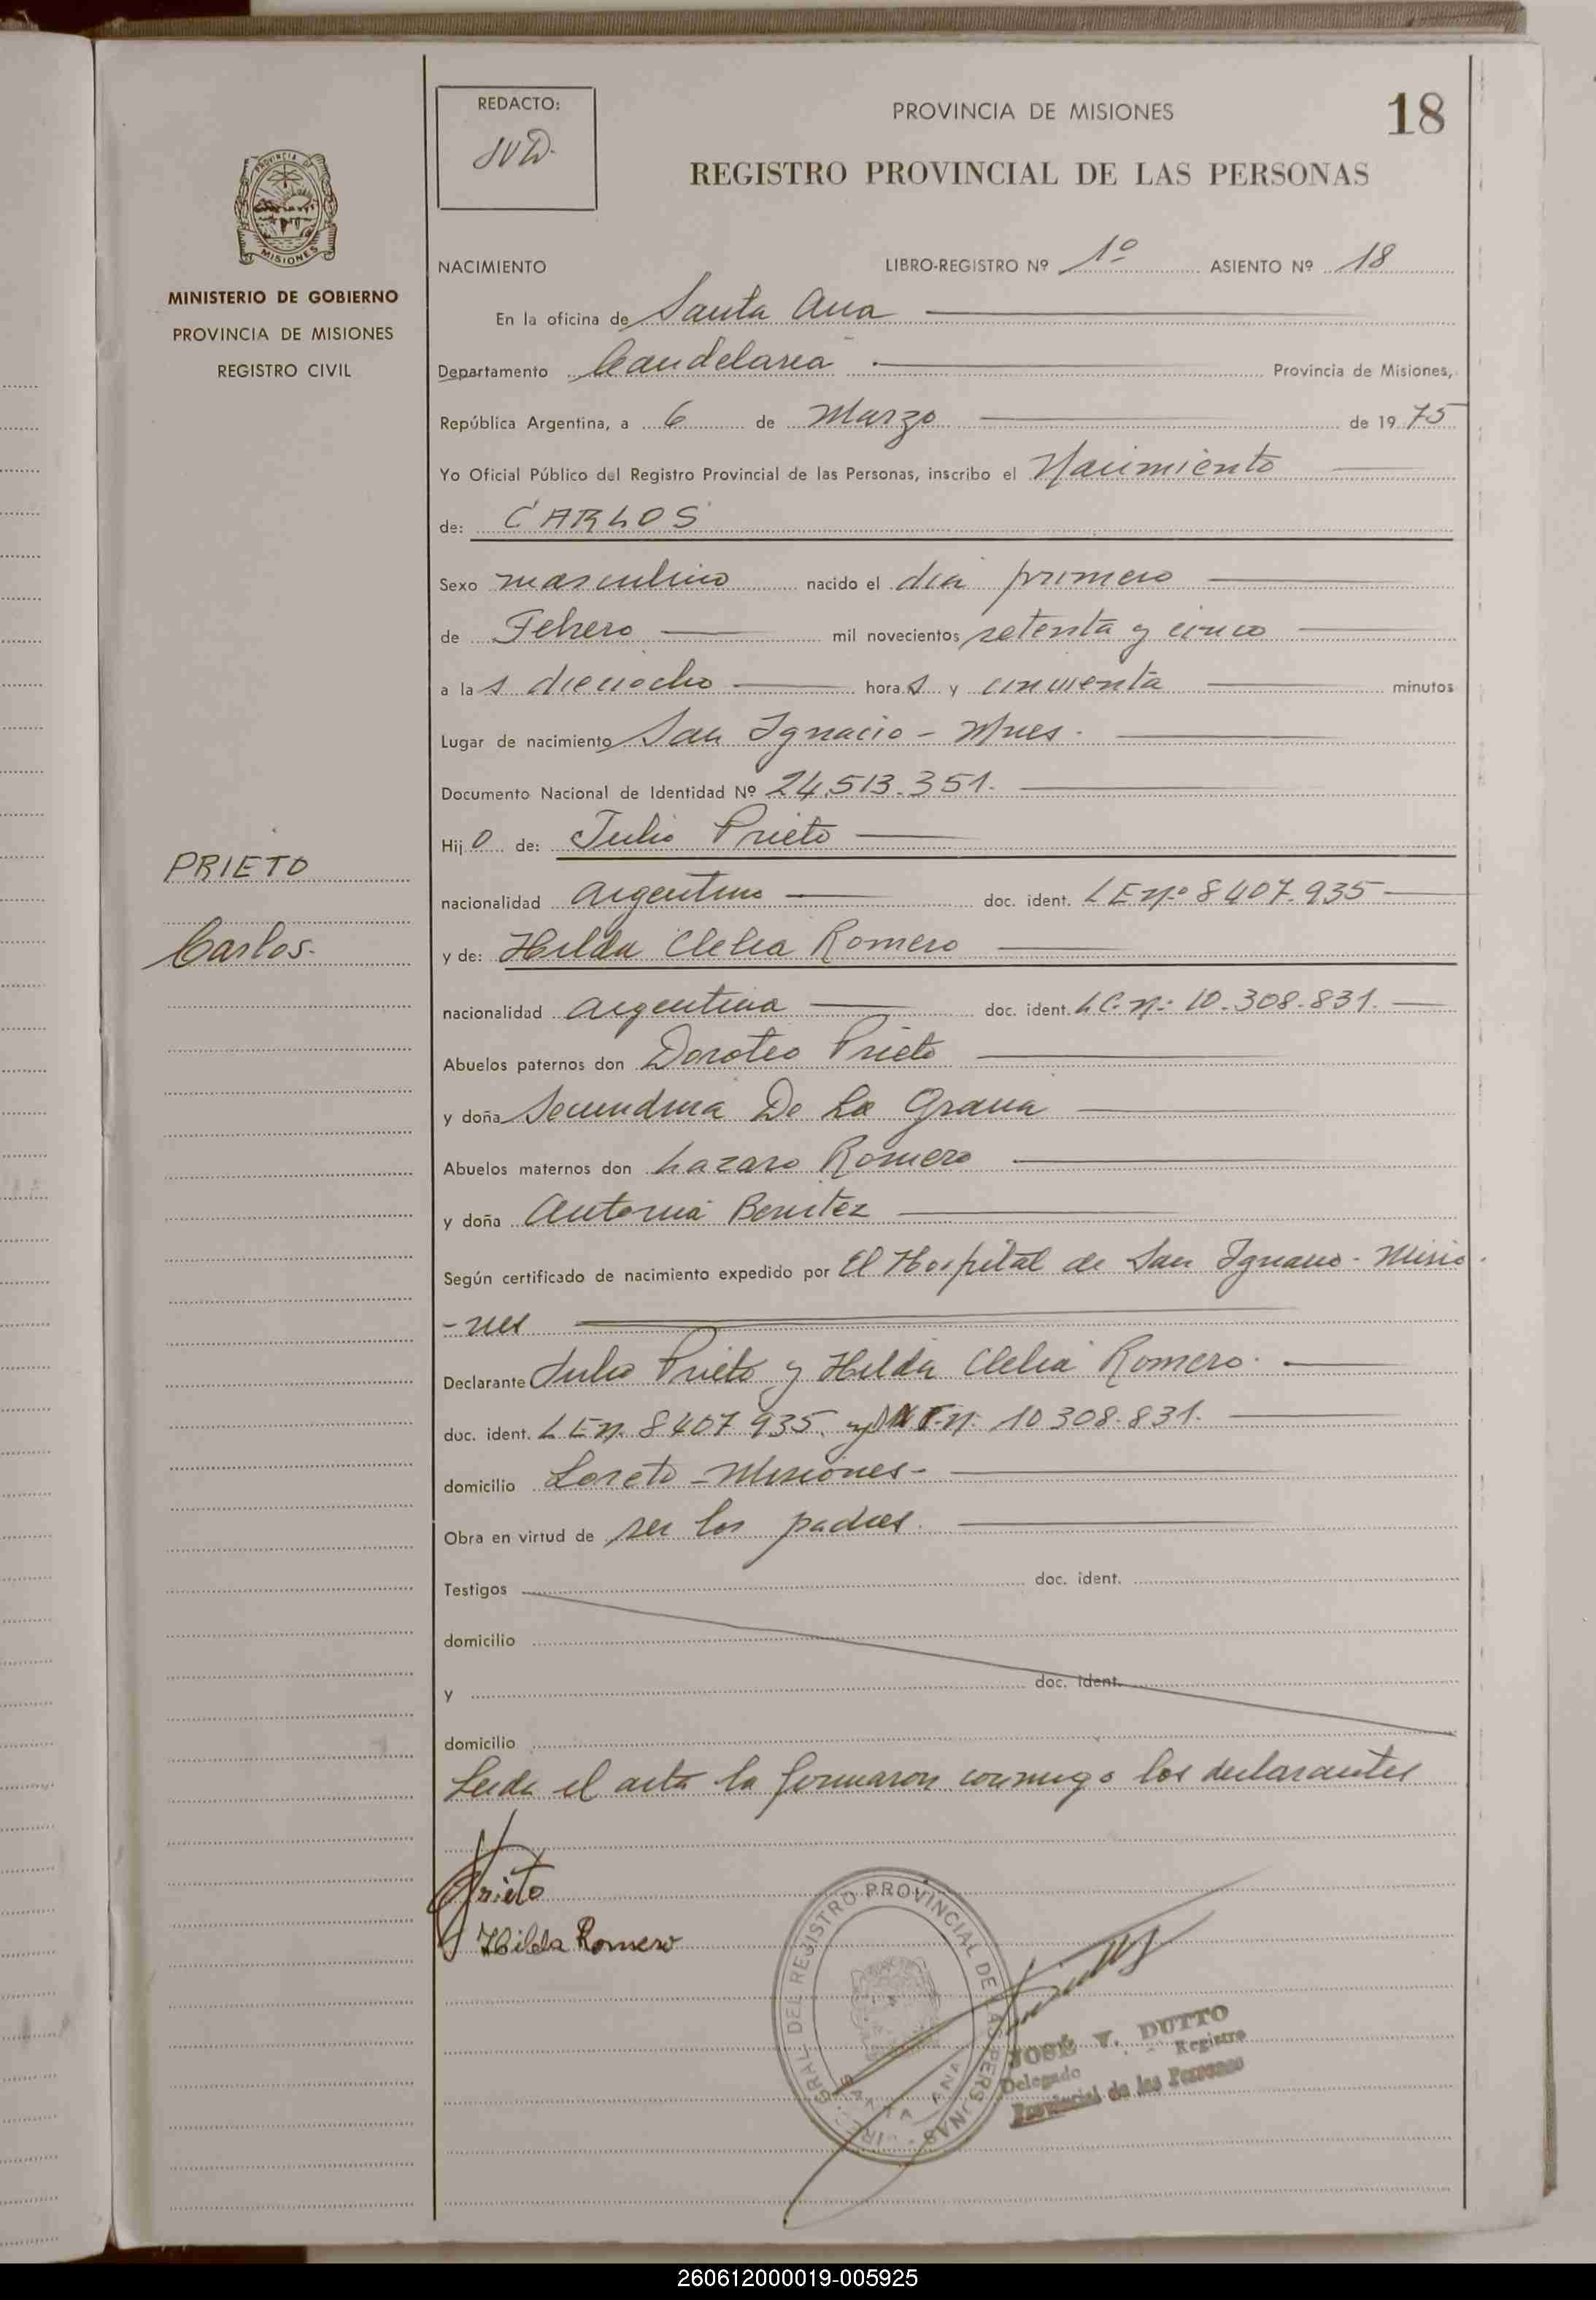 REDACTO:
JVD.
PROVINCIA DE MISIONES
18
REGISTRO PROVINCIAL DE LAS PERSONAS
PROVINCIA DE
MISIONES
MINISTERIO DE GOBIERNO
PROVINCIA DE MISIONES
REGISTRO CIVIL
NACIMIENTO LIBRO-REGISTRO Nº 1º ASIENTO Nº 18
En la oficina de Santa Ana
Departamento Candelaria Provincia de Misiones,
República Argentina, a 6 de Marzo de 1975
Yo Oficial Público del Registro Provincial de las Personas, inscribo el Nacimiento
de: CARLOS
Sexo masculino nacido el día primero
de Febrero mil novecientos setenta y cinco
a las dieciocho horas y cincuenta minutos
Lugar de nacimiento San Ignacio - Mnes.
Documento Nacional de Identidad Nº 24.513.351.
Hijo de: Julio Prieto
PRIETO
nacionalidad argentino doc. ident. LE nº 8407.935
Carlos.
y de: Hilda Clelia Romero
nacionalidad argentina doc. ident. LC. nº 10.308.831.
Abuelos paternos don Doroteo Prieto
y doña Secundina De La Grana
Abuelos maternos don Lazaro Romero
y doña Antonia Benitez
Según certificado de nacimiento expedido por El Hospital de San Ignacio - Misio
-nes
Declarante Julio Prieto y Hilda Clelia Romero.
doc. ident. LE n. 8407935. y n. 10308.831.
domicilio Loreto - Misiones -
Obra en virtud de ser los padres.
Testigos doc. ident.
domicilio
y doc. ident.
domicilio
Leida el acta la firmaron conmigo los declarantes
Prieto
Hilda Romero
GRAL. DEL REGISTRO PROVINCIAL DE LAS PERSONAS
SANTA ANA
JOSÉ V. DUTTO
Delegado Registro
Provincial de las Personas
260612000019-005925